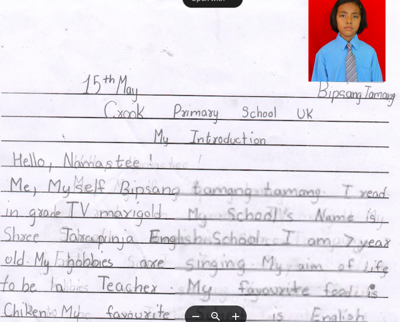 15th May
Bipsang Tamang
Cronk Primary School UK
My Introduction
Hello, Namastee !
Me, My self Bipsang tamang tamang. I read
in grade IV marigold My School's Name is,
Shree English School I am 7 year
old My hobbies are singing My aim of life
to be Teacher. My favourite food is
Chiken My favourite is English